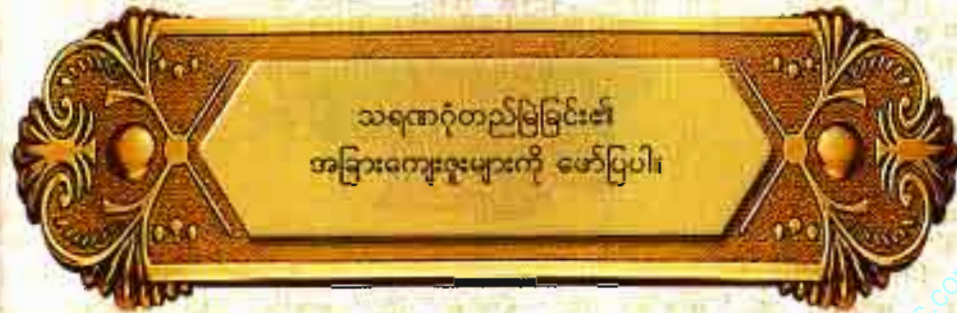 သရဏဂုံတည်မြဲခြင်း၏
အခြားကျေးဇူးများကို ဖော်ပြပါ။